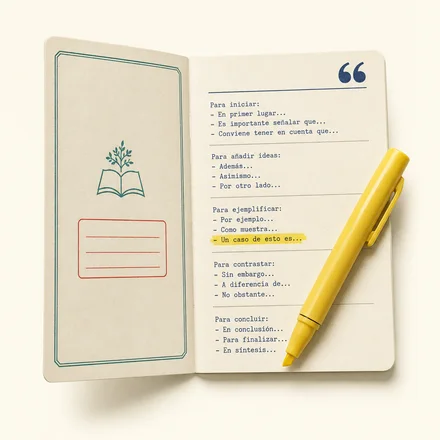 Para iniciar:
- En primer lugar...
- Es importante señalar que...
- Conviene tener en cuenta que...
Para añadir ideas:
- Además...
- Asimismo...
- Por otro lado...
Para ejemplificar:
- Por ejemplo...
- Como muestra...
- Un caso de esto es...
Para contrastar:
- Sin embargo...
- A diferencia de...
- No obstante...
Para concluir:
- En conclusión...
- Para finalizar...
- En síntesis...